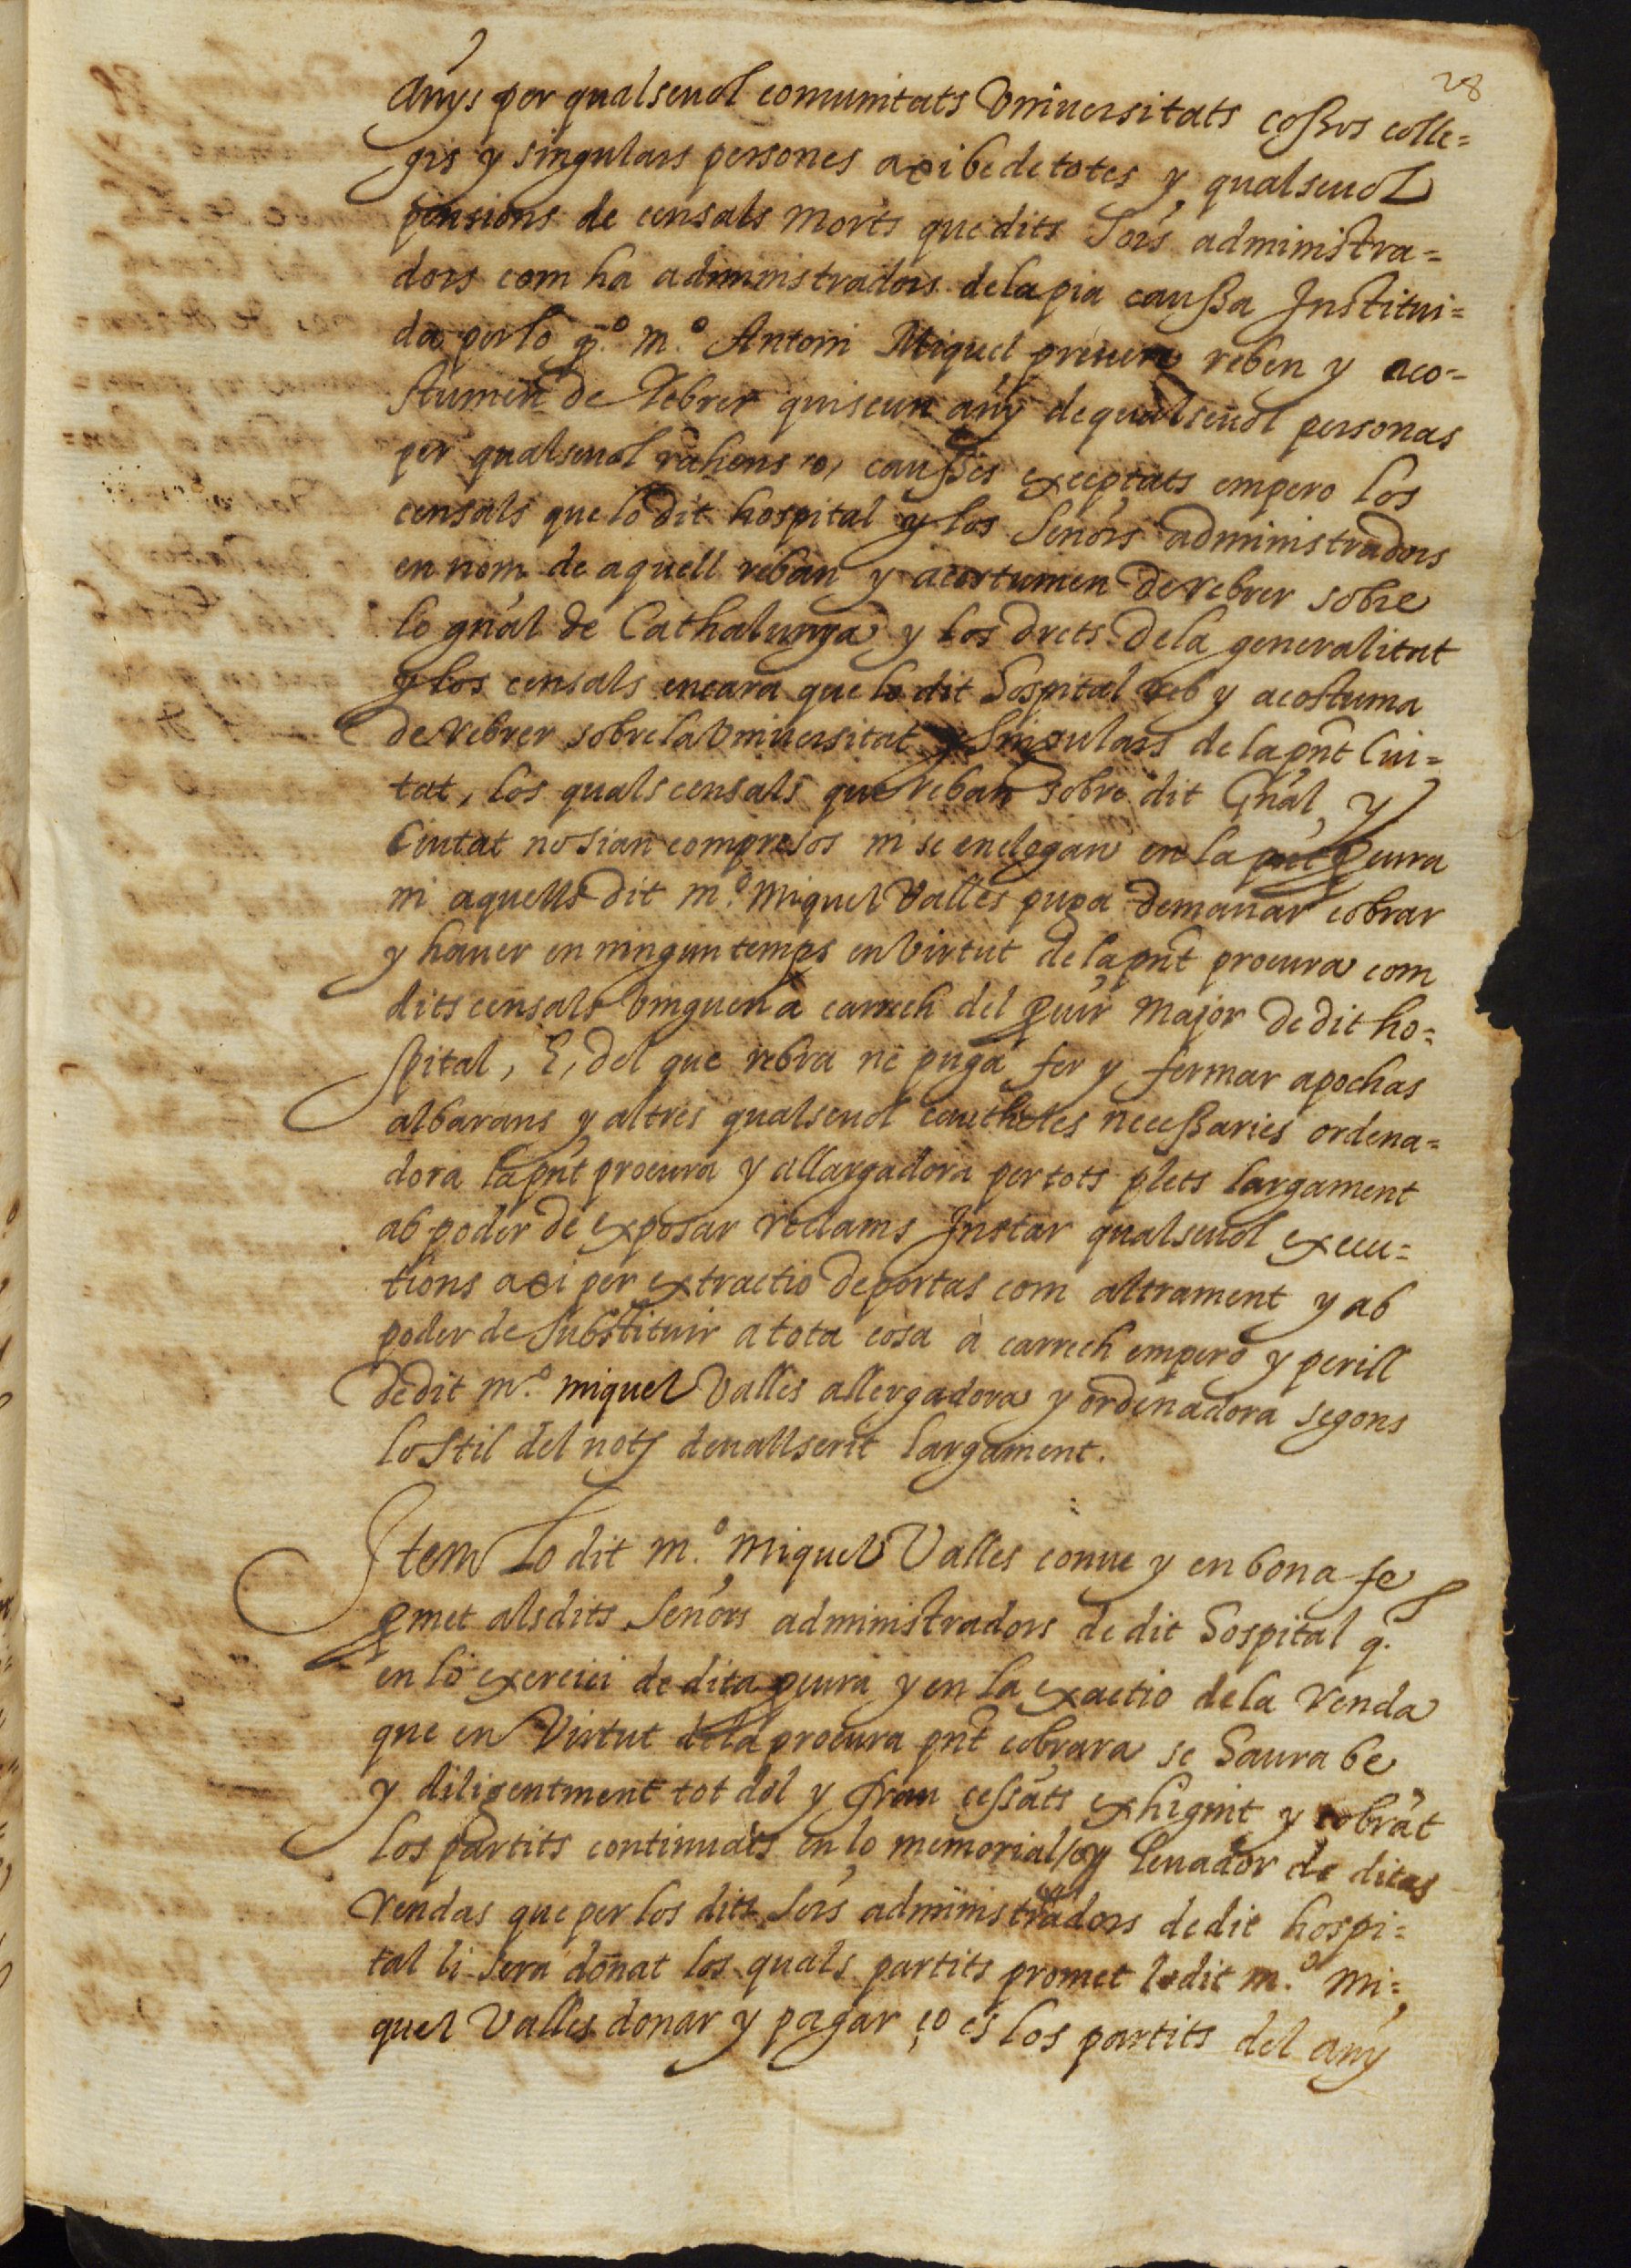 28
Anys per qualseuol comunitats Vniuersitats coßos colle=
gis y singulars persones axi be de totes y qualseuol
pensions de censals morts que dits Sors administra=
dors com ha administradors de la pia caußa Institui=
da per lo qº. mº. Antoni Miquel preuere reben y aco=
stumen de Rebrer quiscun any de qualseuol personas
per qualseuol rahons o, caußes exceptats empero los
censals que lo dit hospital y los Señors administradors
en nom de aquell reban y acostumen de rebrer sobre
lo gñal de Cathalunya y los drets de la generalitat
y los censals encara que lo dit Hospital reb y acostuma
de rebrer sobre la Vniuersitat y Singulars de la pñt Ciu=
tat, los quals censals que reban sobre dit Gñal, y
Ciutat no sian compresos ni se enclogan en la pñt pcura
ni aquells dit mº. Miquel Valles puga demanar cobrar
y hauer en ningun temps en Virtut de la pñt procura com
dits censals vinguen a carrech del pcur Major de dit ho=
spital, E, del que rebra ne puga fer y fermar apochas
albarans y altres qualseuol cautheles neceßaries ordena=
dora la pñt procura y allargadora per tots plets largament
ab poder de exposar reclams Instar qualseuol execu=
tions axi per extractio de portas com altrament y ab
poder de Substituir a tota cosa à carrech empero y perill
de dit mº. miquel Valles allergadora y ordenadora segons
lo Stil del not devallscrit largament.
Item Lo dit mº. Miquel Valles conue y en bona fe
pmet als dits Señors administradors de dit Hospital q.
en lo exercici de dita pcura y en la exactio de la Renda
que en Virtut de la procura pñt cobrara se Haura be
y diligentment tot dol y frau ceßats exhigint y cobrãt
los partits continuats en lo memorial /o/ y leuador de ditas
Rendas que per los dits Sors administradors de dit hospi=
tal li sera doñat los quals partits promet lo dit mº. Mi=
quel Valles donar y pagar ço es los partits del any